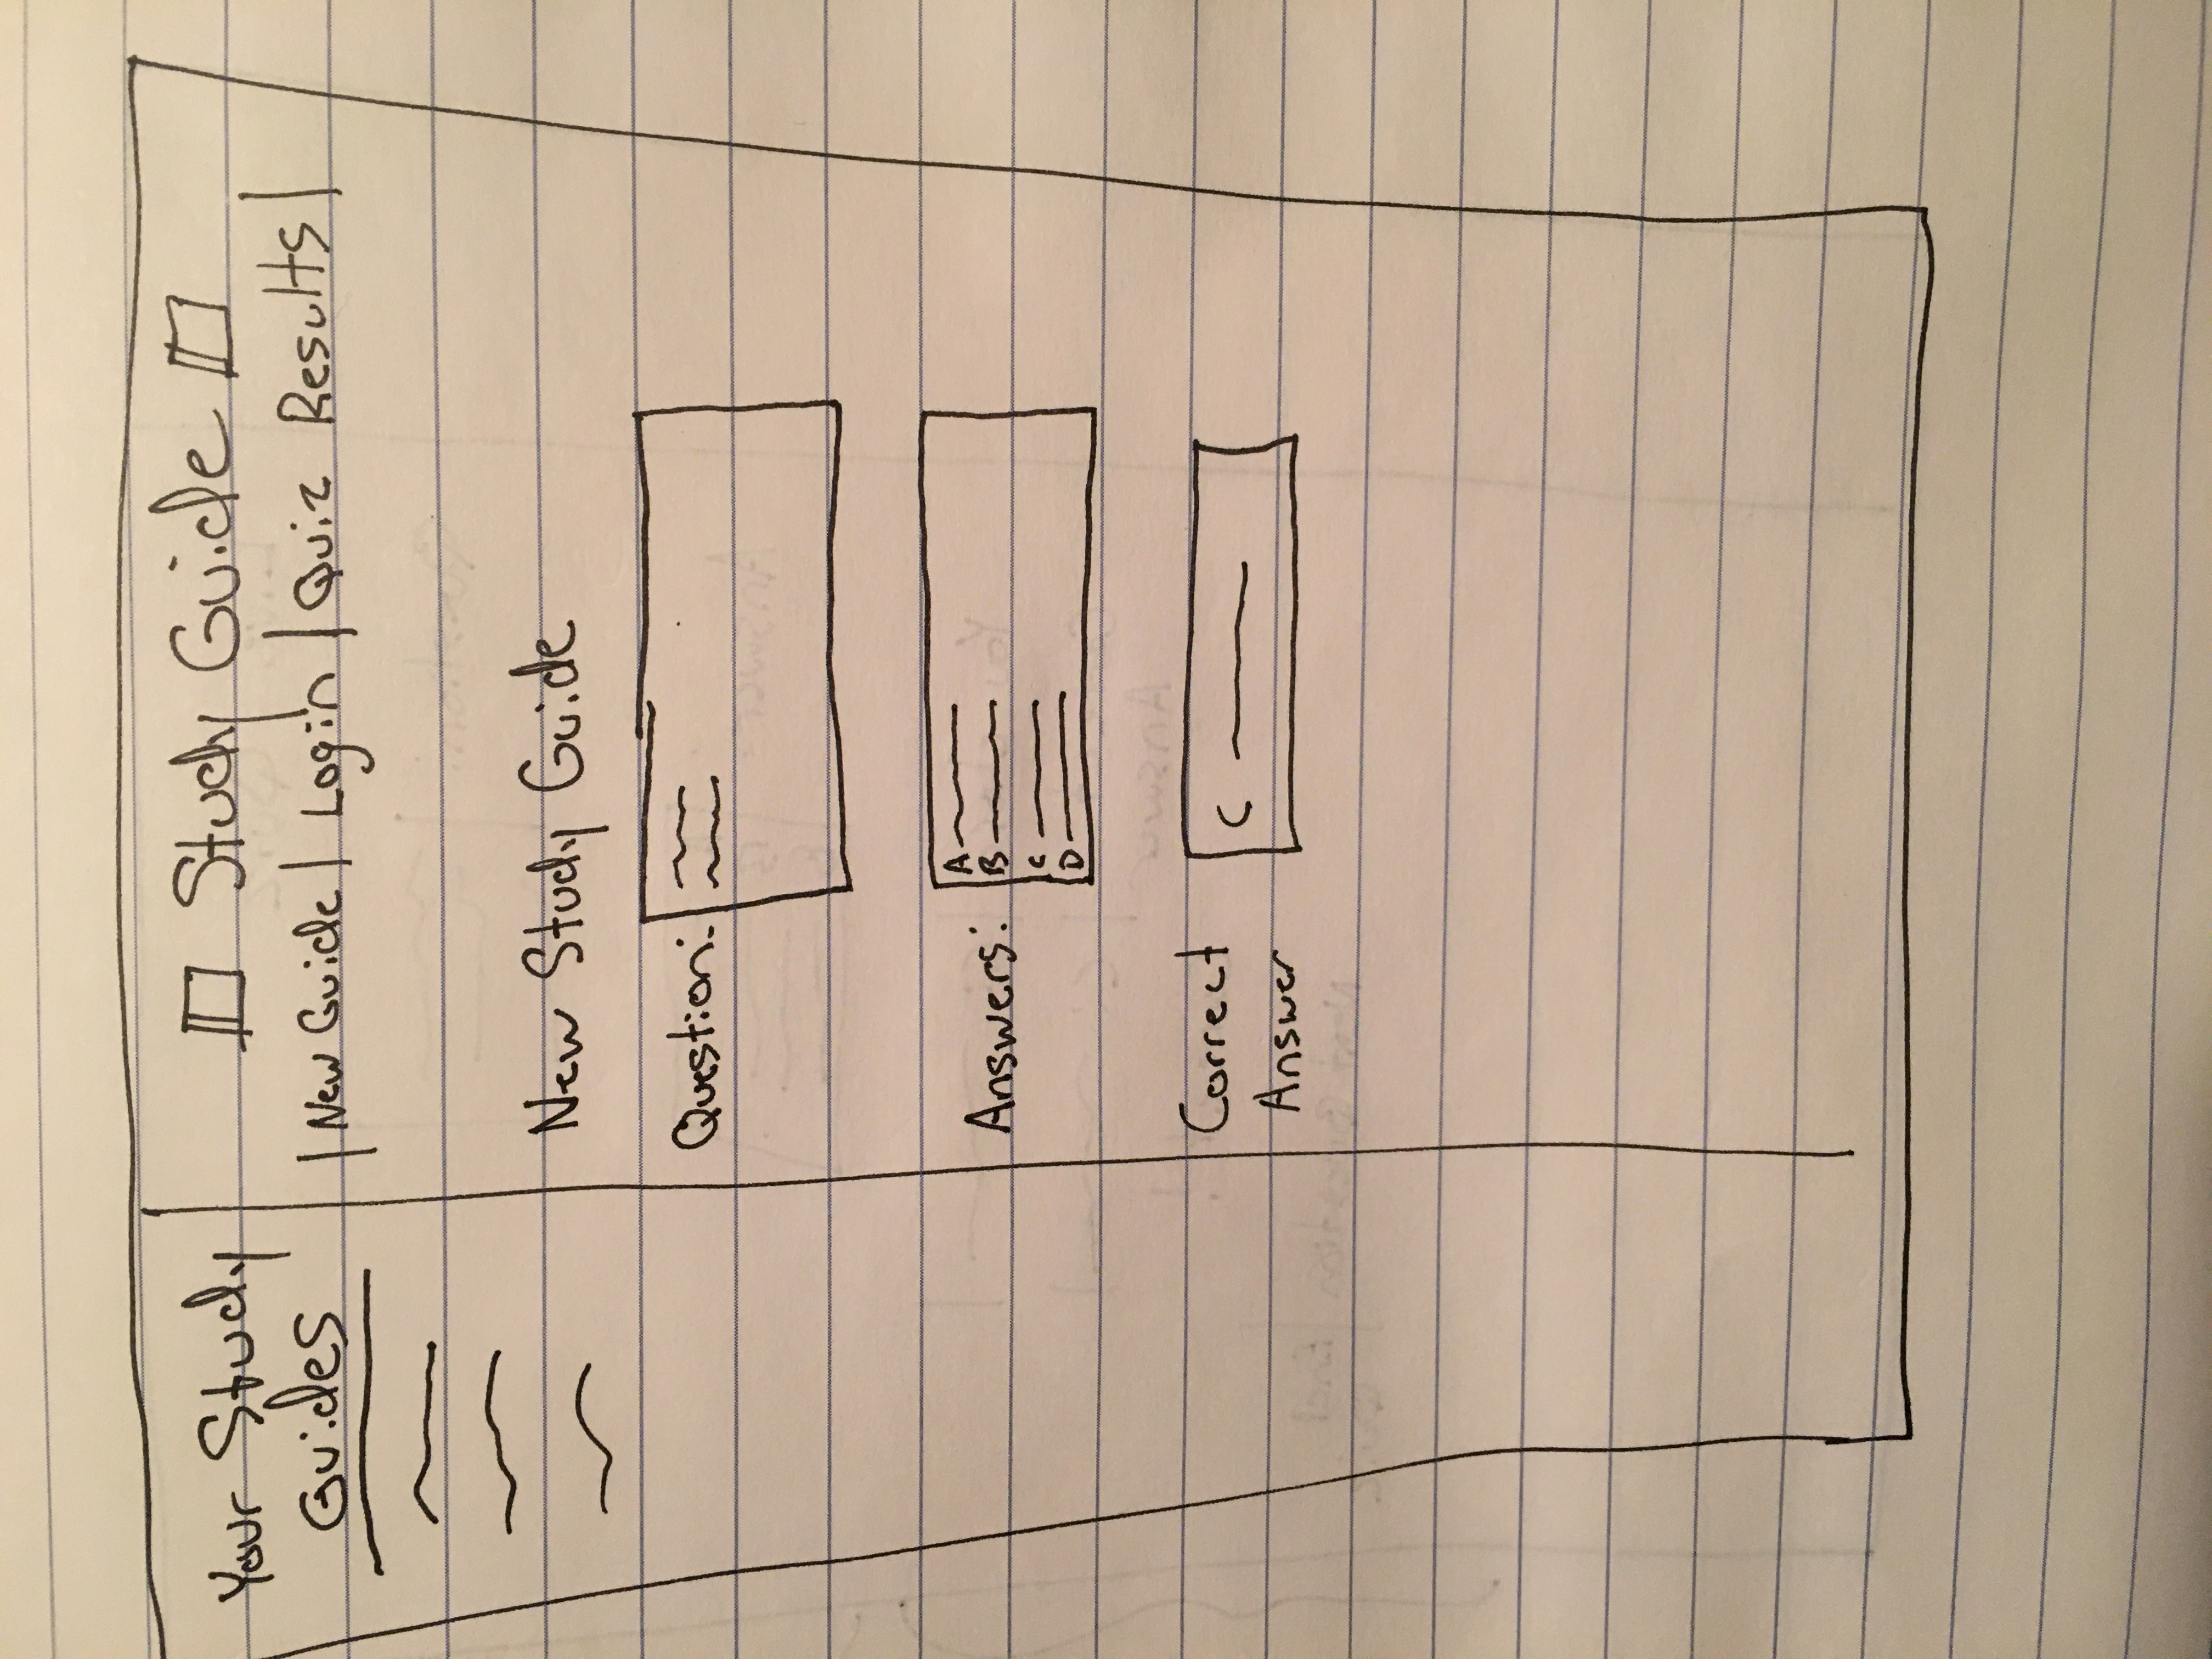 Your Study
Guides
Study Guide
| New Guide | Login | Quiz Results |
New Study Guide
Question:
Answers:
A
B
C
D
Correct
Answer
C